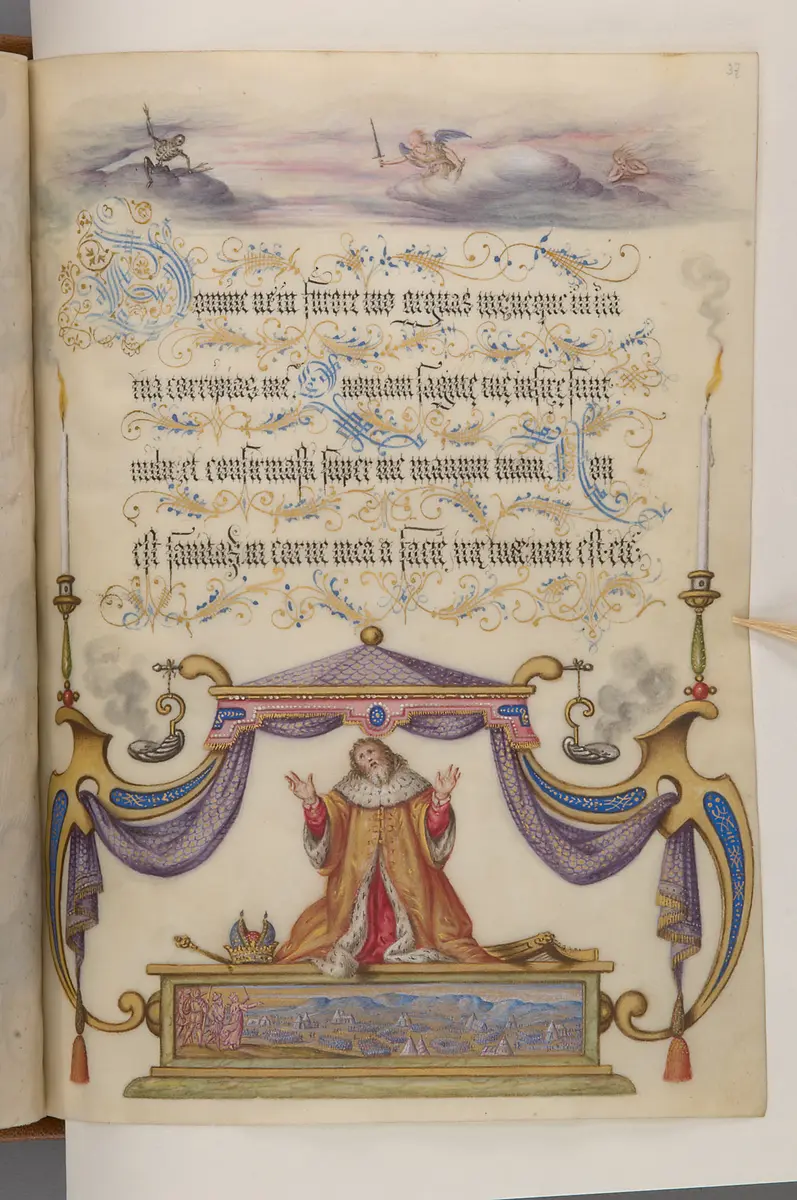 37
Domine ne in furore tuo arguas me neque in ira
tua corripias me. Quoniam sagittę tuę infixę sunt
mihi et confirmasti super me manum tuam. Non
est sanitas in carne mea a facie irę tuę non est. etc.